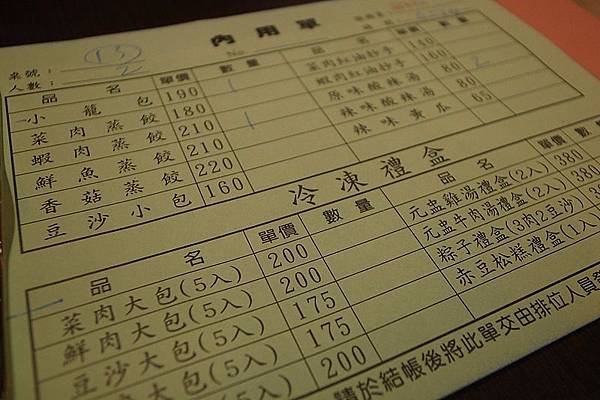 內用單
No.
桌號： 13
人數： 2
品 名 單價 數量
小籠包 190 1
菜肉蒸餃 180
蝦肉蒸餃 210 1
鮮魚蒸餃 210
香菇蒸餃 220
豆沙小包 160
品 名 單價 數量
菜肉紅油抄手 140
蝦肉紅油抄手 160
原味酸辣湯 80
辣味酸辣湯 80
辣味黃瓜 65
冷凍禮盒
品 名 單價 數量
菜肉大包(5入) 200
鮮肉大包(5入) 200
豆沙大包(5入) 175
175
200
品 名 單價
元盅雞湯禮盒(2入) 380
元盅牛肉湯禮盒(2入) 380
粽子禮盒(3肉2豆沙)
赤豆鬆糕禮盒(1入)
請於結帳後將此單交由排位人員